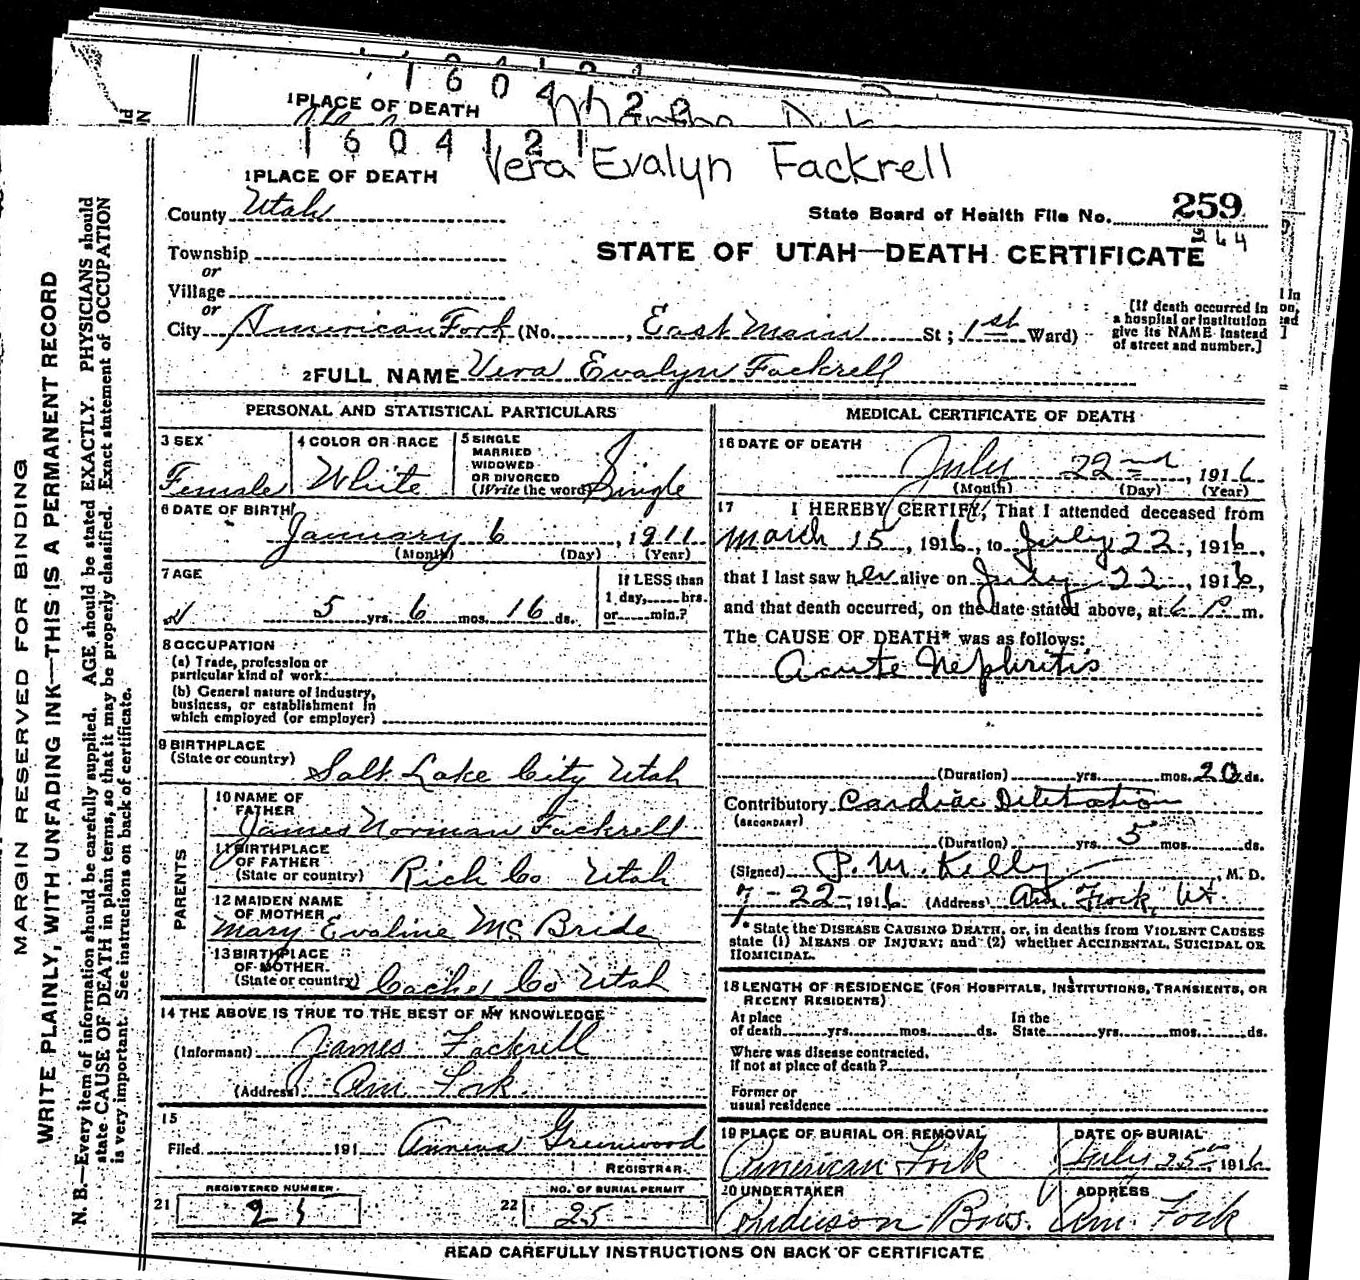 1 6 0 4 1 2 1
1 PLACE OF DEATH
1 6 0 4 1 2 1
Vera Evalyn Fackrell
1 PLACE OF DEATH
County Utah
State Board of Health File No. 259
164
Township
STATE OF UTAH—DEATH CERTIFICATE
or
Village
or
City American Fork (No. , East Main St ; 1st Ward)
[If death occurred in a hospital or institution give its NAME instead of street and number.]
2 FULL NAME Vera Evalyn Fackrell
PERSONAL AND STATISTICAL PARTICULARS
3 SEX
Female
4 COLOR OR RACE
White
5 SINGLE MARRIED WIDOWED OR DIVORCED (Write the word) Single
6 DATE OF BIRTH
January 6, 1911
(Month) (Day) (Year)
7 AGE
5 yrs. 6 mos. 16 ds.
If LESS than 1 day, hrs. or min.?
8 OCCUPATION
(a) Trade, profession or particular kind of work
(b) General nature of industry, business, or establishment in which employed (or employer)
9 BIRTHPLACE
(State or country) Salt Lake City Utah
PARENTS
10 NAME OF FATHER
James Norman Fackrell
11 BIRTHPLACE OF FATHER
(State or country) Rich Co Utah
12 MAIDEN NAME OF MOTHER
Mary Evaline McBride
13 BIRTHPLACE OF MOTHER
(State or country) Cache Co Utah
14 THE ABOVE IS TRUE TO THE BEST OF MY KNOWLEDGE
(Informant) James Fackrell
(Address) Am Fork
15
Filed 191 Greenwood
REGISTRAR
21 REGISTERED NUMBER
22 NO. OF BURIAL PERMIT
25
MEDICAL CERTIFICATE OF DEATH
16 DATE OF DEATH
July 22nd, 1916
(Month) (Day) (Year)
17 I HEREBY CERTIFY, That I attended deceased from
March 15, 1916, to July 22, 1916,
that I last saw her alive on July 22, 1916,
and that death occurred, on the date stated above, at 6 P. m.
The CAUSE OF DEATH* was as follows:
Acute Nephritis
(Duration) yrs. mos. 20 ds.
Contributory Cardiac Diletation
(SECONDARY)
(Duration) yrs. 5 mos. ds.
(Signed) P. M. Kelly, M. D.
7-22-, 1916 (Address) Am. Fork, Ut.
* State the DISEASE CAUSING DEATH, or, in deaths from VIOLENT CAUSES
state (1) MEANS OF INJURY; and (2) whether ACCIDENTAL, SUICIDAL OR
HOMICIDAL.
18 LENGTH OF RESIDENCE (FOR HOSPITALS, INSTITUTIONS, TRANSIENTS, OR
RECENT RESIDENTS)
At place of death yrs. mos. ds. In the State yrs. mos. ds.
Where was disease contracted,
If not at place of death ?
Former or
usual residence
19 PLACE OF BURIAL OR REMOVAL
American Fork
DATE OF BURIAL
July 25, 1916
20 UNDERTAKER
Anderson Bros.
ADDRESS
Am. Fork
READ CAREFULLY INSTRUCTIONS ON BACK OF CERTIFICATE
MARGIN RESERVED FOR BINDING
WRITE PLAINLY, WITH UNFADING INK—THIS IS A PERMANENT RECORD
N. B.—Every item of information should be carefully supplied. AGE should be stated EXACTLY. PHYSICIANS should
state CAUSE OF DEATH in plain terms, so that it may be properly classified. Exact statement of OCCUPATION
is very important. See instructions on back of certificate.